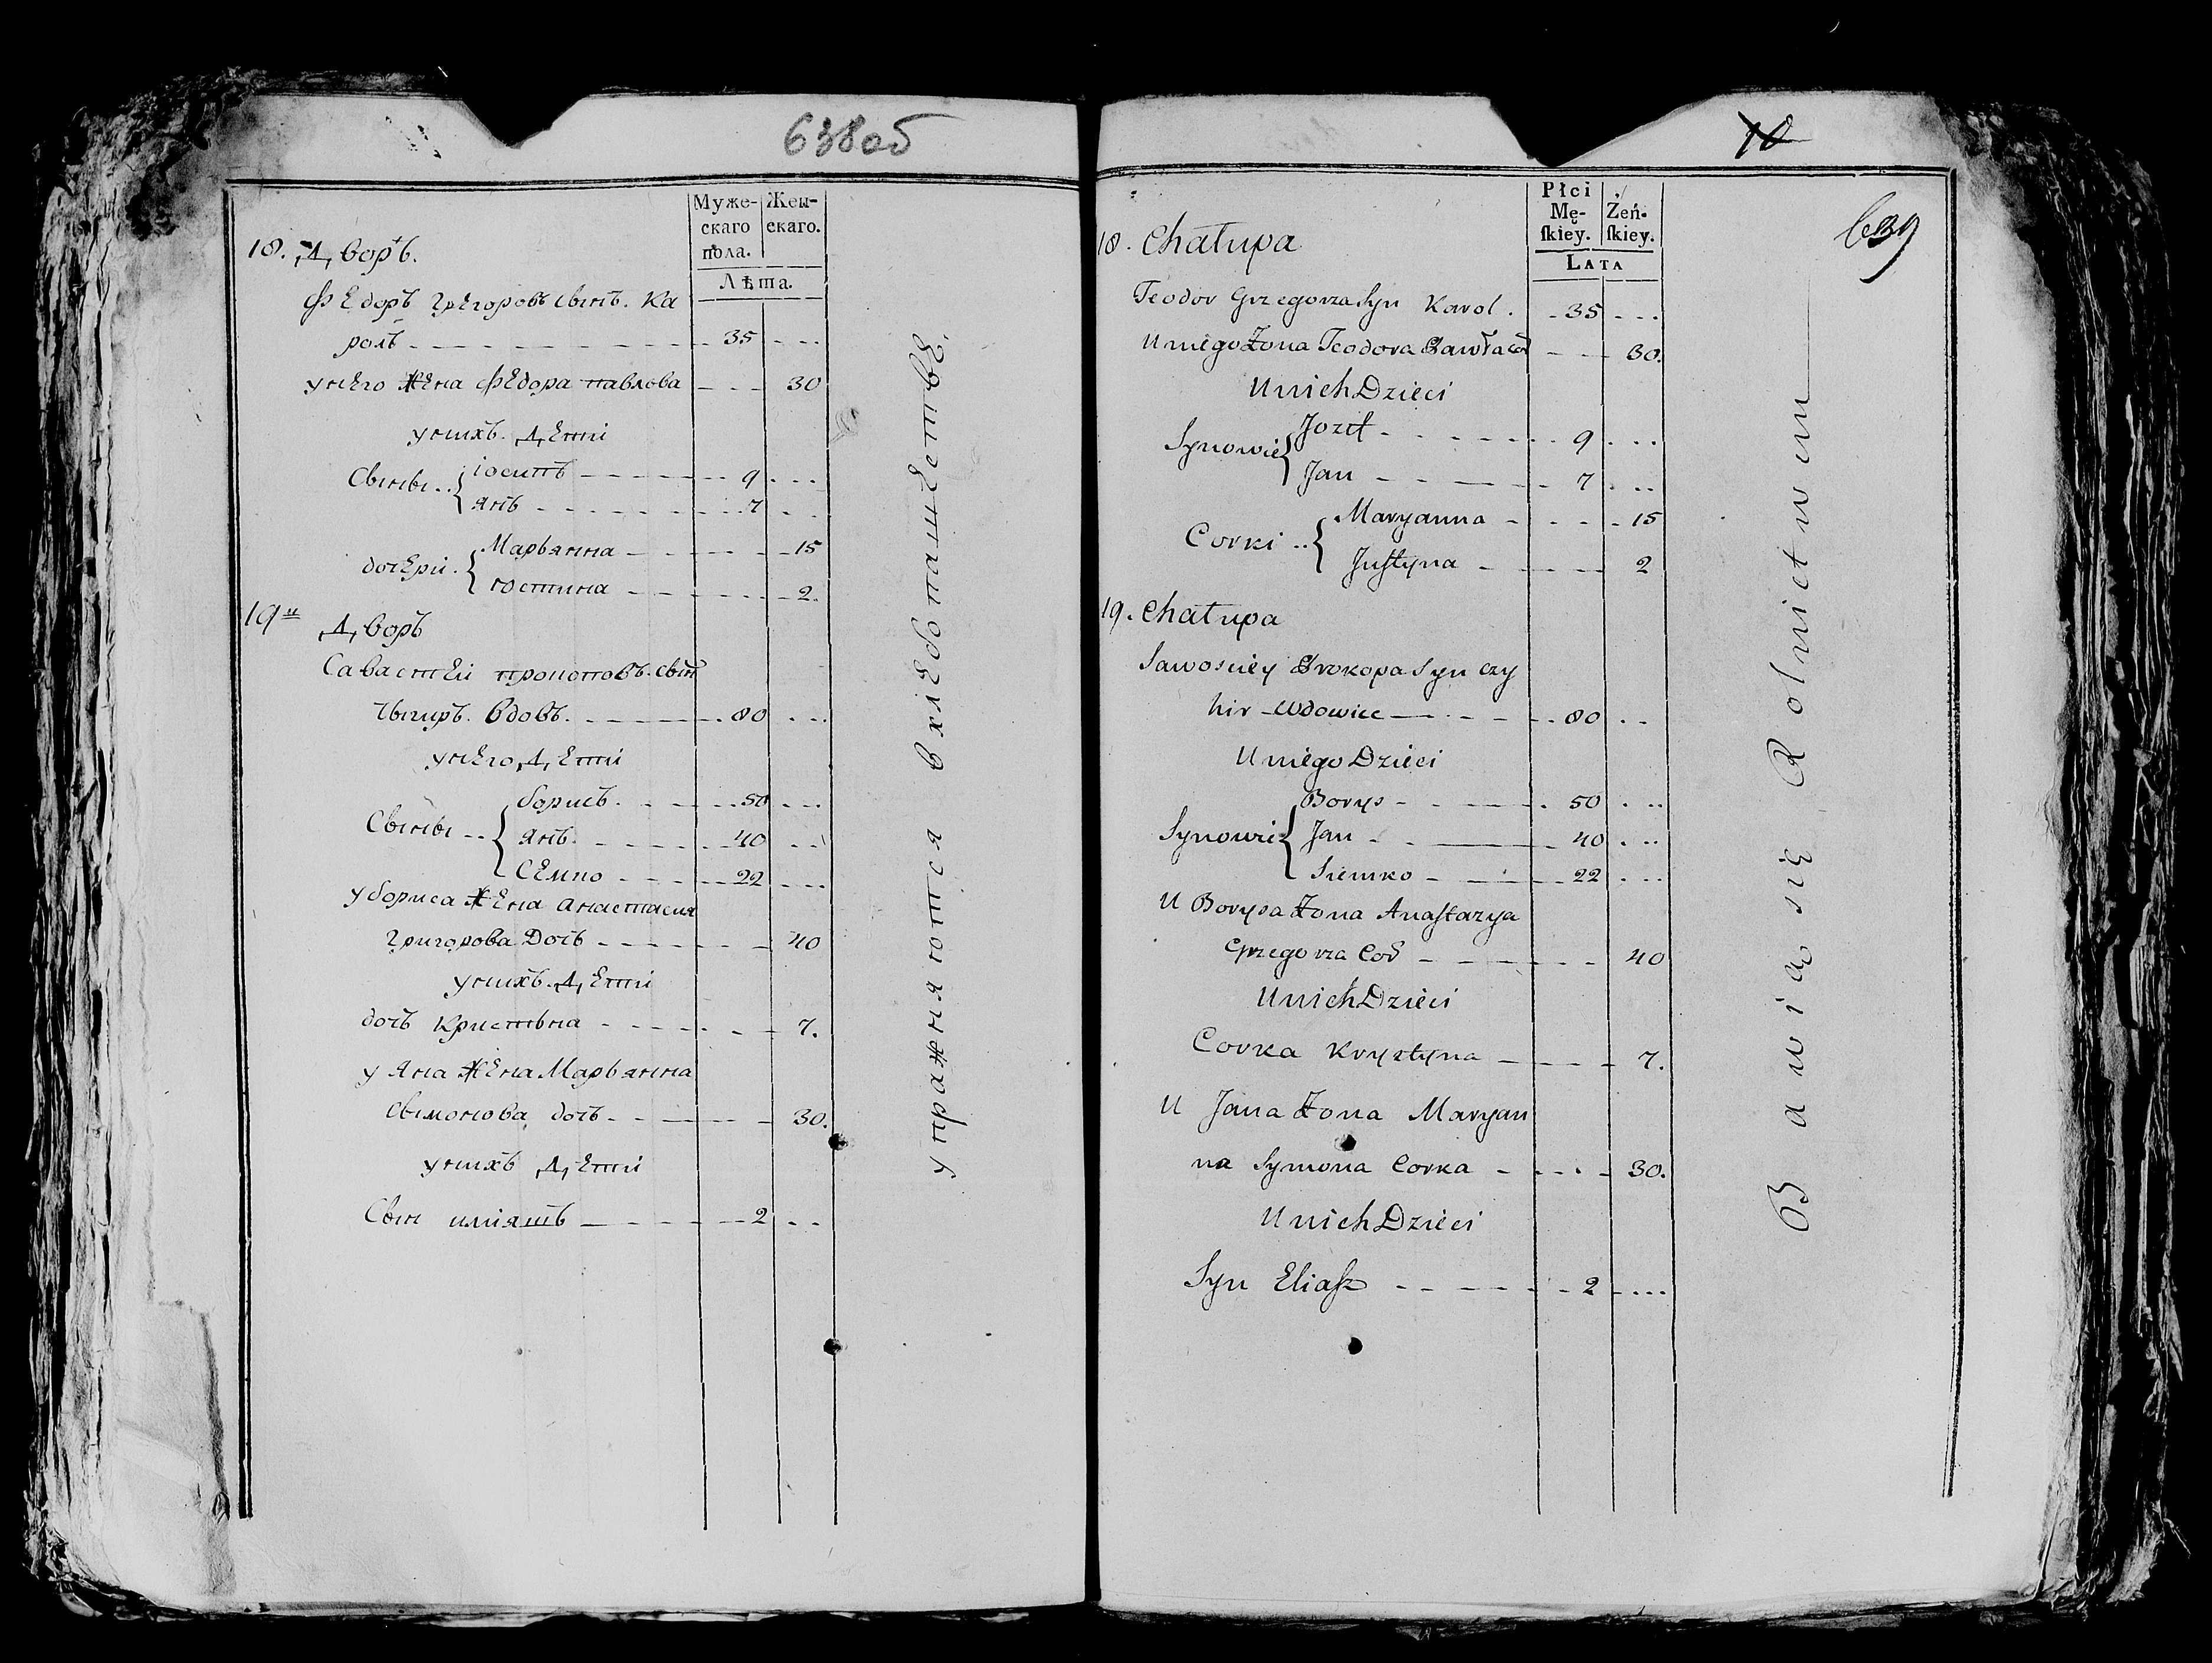 638об
Муже-
скаго
пола.
Жен-
скаго.
Лѣта.
18. Дворъ.
Федоръ Григоровъ сынъ. Ка
роль 35
унего жена Федора павлова 30
унихъ. Дети
Сыны іосипъ 9
янъ 7
дочери Марьянна 15
юстина 2
19й Дворъ
Савастей прокоповъ. сынъ
Чыгиръ. вдовъ. 80
унего, Дети
Сыны борисъ. 50
янъ. 40
Семко 22
убориса жена анастасия
Григорова Дочь 40
унихъ. Дети
дочь Кристына 7.
у яна жена Марьянна
сымонова дочь 30.
унихъ Дети
Сын илияшъ 2
упражняются вхлебопашестве.
10
639
Płci
Mę-
skiey.
Żeń-
skiey.
LATA
18. Chałupa
Teodor Grzegorza Syn Karol. 35
U niego Żona Teodora Pawła Cor 30.
U nich Dzieci
Synowie Jozef 9
Jan 7
Corki Maryanna 15
Justyna 2
19. Chałupa
Sawosciey Prokopa Syn Czy
hir Wdowiec 80
U niego Dzieci
Synowie Borys 50
Jan 40
Siemko 22
U Borysa Żona Anastazya
Grzegorza Cor 40
U nich Dzieci
Corka Krystyna 7.
U Jana Żona Maryan
na Symona Corka 30.
U nich Dzieci
Syn Eliasz 2
Bawią się Rolnictwem